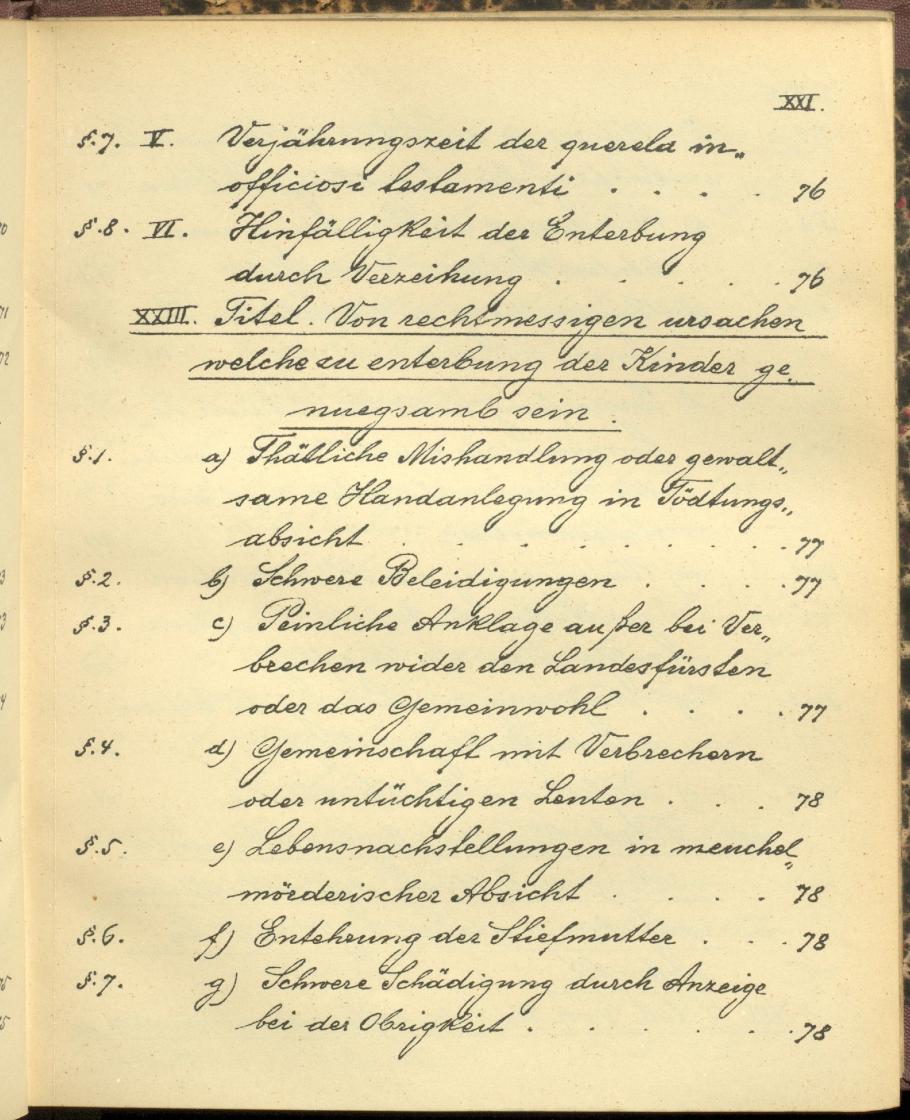 XXI.
§.7. V. Verjährungszeit der querela in„
officiosi testamenti . . . . 76
§.8. VI. Hinfälligkeit der Enterbung
durch Verzeihung . . . . . 76
XXIII. Titel. Von rechtmessigen ursachen
welche zu enterbung der Kinder ge„
nuegsamb sein .
§.1. a) Thätliche Mishandlung oder gewalt„
same Handanlegung in Tödtungs„
absicht . . . . . . . . . 77
§.2. b) Schwere Beleidigungen . . . . 77
§.3. c) Peinliche Anklage außer bei Ver„
brechen wider den Landesfürsten
oder das Gemeinwohl . . . . 77
§.4. d) Gemeinschaft mit Verbrechern
oder untüchtigen Leuten . . . 78
§.5. e) Lebensnachstellungen in meuchel„
mörderischer Absicht . . . . 78
§.6. f) Entehrung der Stiefmutter . . . 78
§.7. g) Schwere Schädigung durch Anzeige
bei der Obrigkeit . . . . . . 78